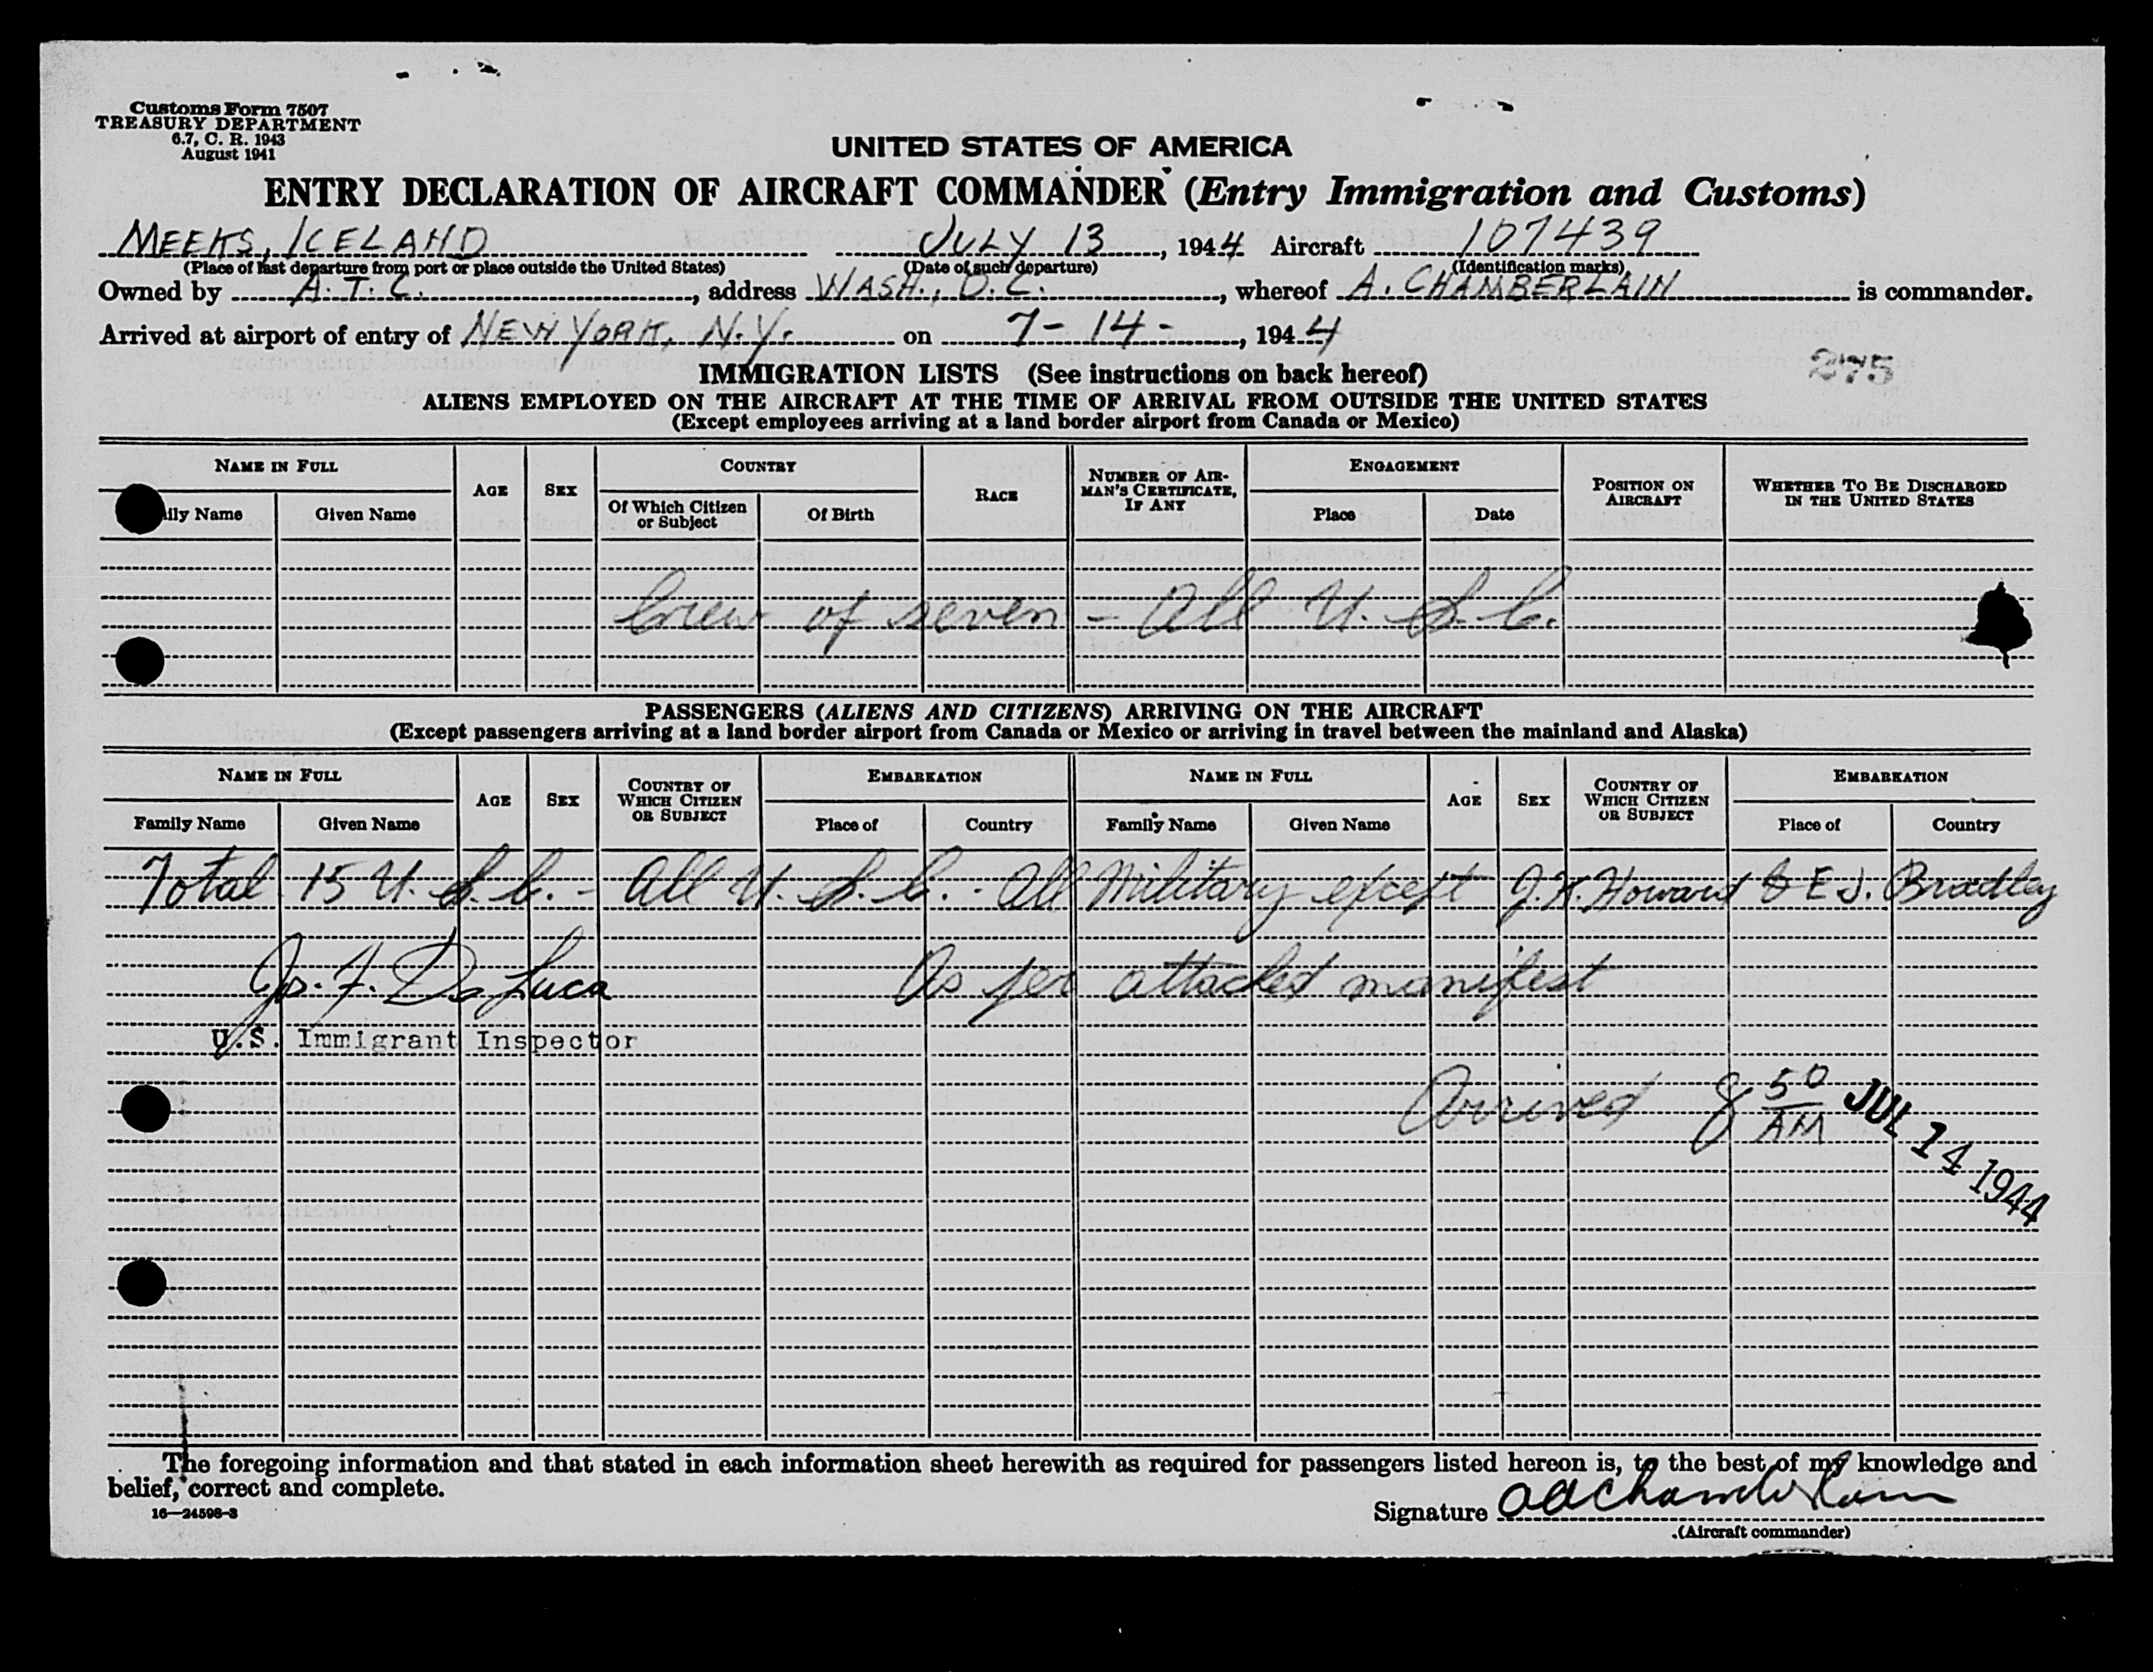 Customs Form 7507
TREASURY DEPARTMENT
6.7, C. R. 1943
August 1941
UNITED STATES OF AMERICA
ENTRY DECLARATION OF AIRCRAFT COMMANDER (Entry Immigration and Customs)
MEEKS, ICELAND JULY 13, 1944 Aircraft 107439
(Place of last departure from port or place outside the United States) (Date of such departure) (Identification marks)
Owned by A. T. C., address WASH., D. C., whereof A. CHAMBERLAIN is commander.
Arrived at airport of entry of NEW YORK, N.Y. on 7-14-, 1944
275
IMMIGRATION LISTS (See instructions on back hereof)
ALIENS EMPLOYED ON THE AIRCRAFT AT THE TIME OF ARRIVAL FROM OUTSIDE THE UNITED STATES
(Except employees arriving at a land border airport from Canada or Mexico)
NAME IN FULL AGE SEX COUNTRY RACE NUMBER OF AIRMAN'S CERTIFICATE, IF ANY ENGAGEMENT POSITION ON AIRCRAFT WHETHER TO BE DISCHARGED IN THE UNITED STATES
ily Name Given Name Of Which Citizen or Subject Of Birth Place Date
Crew of seven - All U. S. C.
PASSENGERS (ALIENS AND CITIZENS) ARRIVING ON THE AIRCRAFT
(Except passengers arriving at a land border airport from Canada or Mexico or arriving in travel between the mainland and Alaska)
NAME IN FULL AGE SEX COUNTRY OF WHICH CITIZEN OR SUBJECT EMBARKATION NAME IN FULL AGE SEX COUNTRY OF WHICH CITIZEN OR SUBJECT EMBARKATION
Family Name Given Name Place of Country Family Name Given Name Place of Country
Total 15 U. S. C. - All U. S. C. - All Military except J. K. Howard & E J. Bradley
Jos. F. De Luca As per attached manifest
U.S. Immigrant Inspector
Arrived 8 50 AM JUL 14 1944
The foregoing information and that stated in each information sheet herewith as required for passengers listed hereon is, to the best of my knowledge and
belief, correct and complete.
16—24598-3
Signature A A Chamberlain
(Aircraft commander)